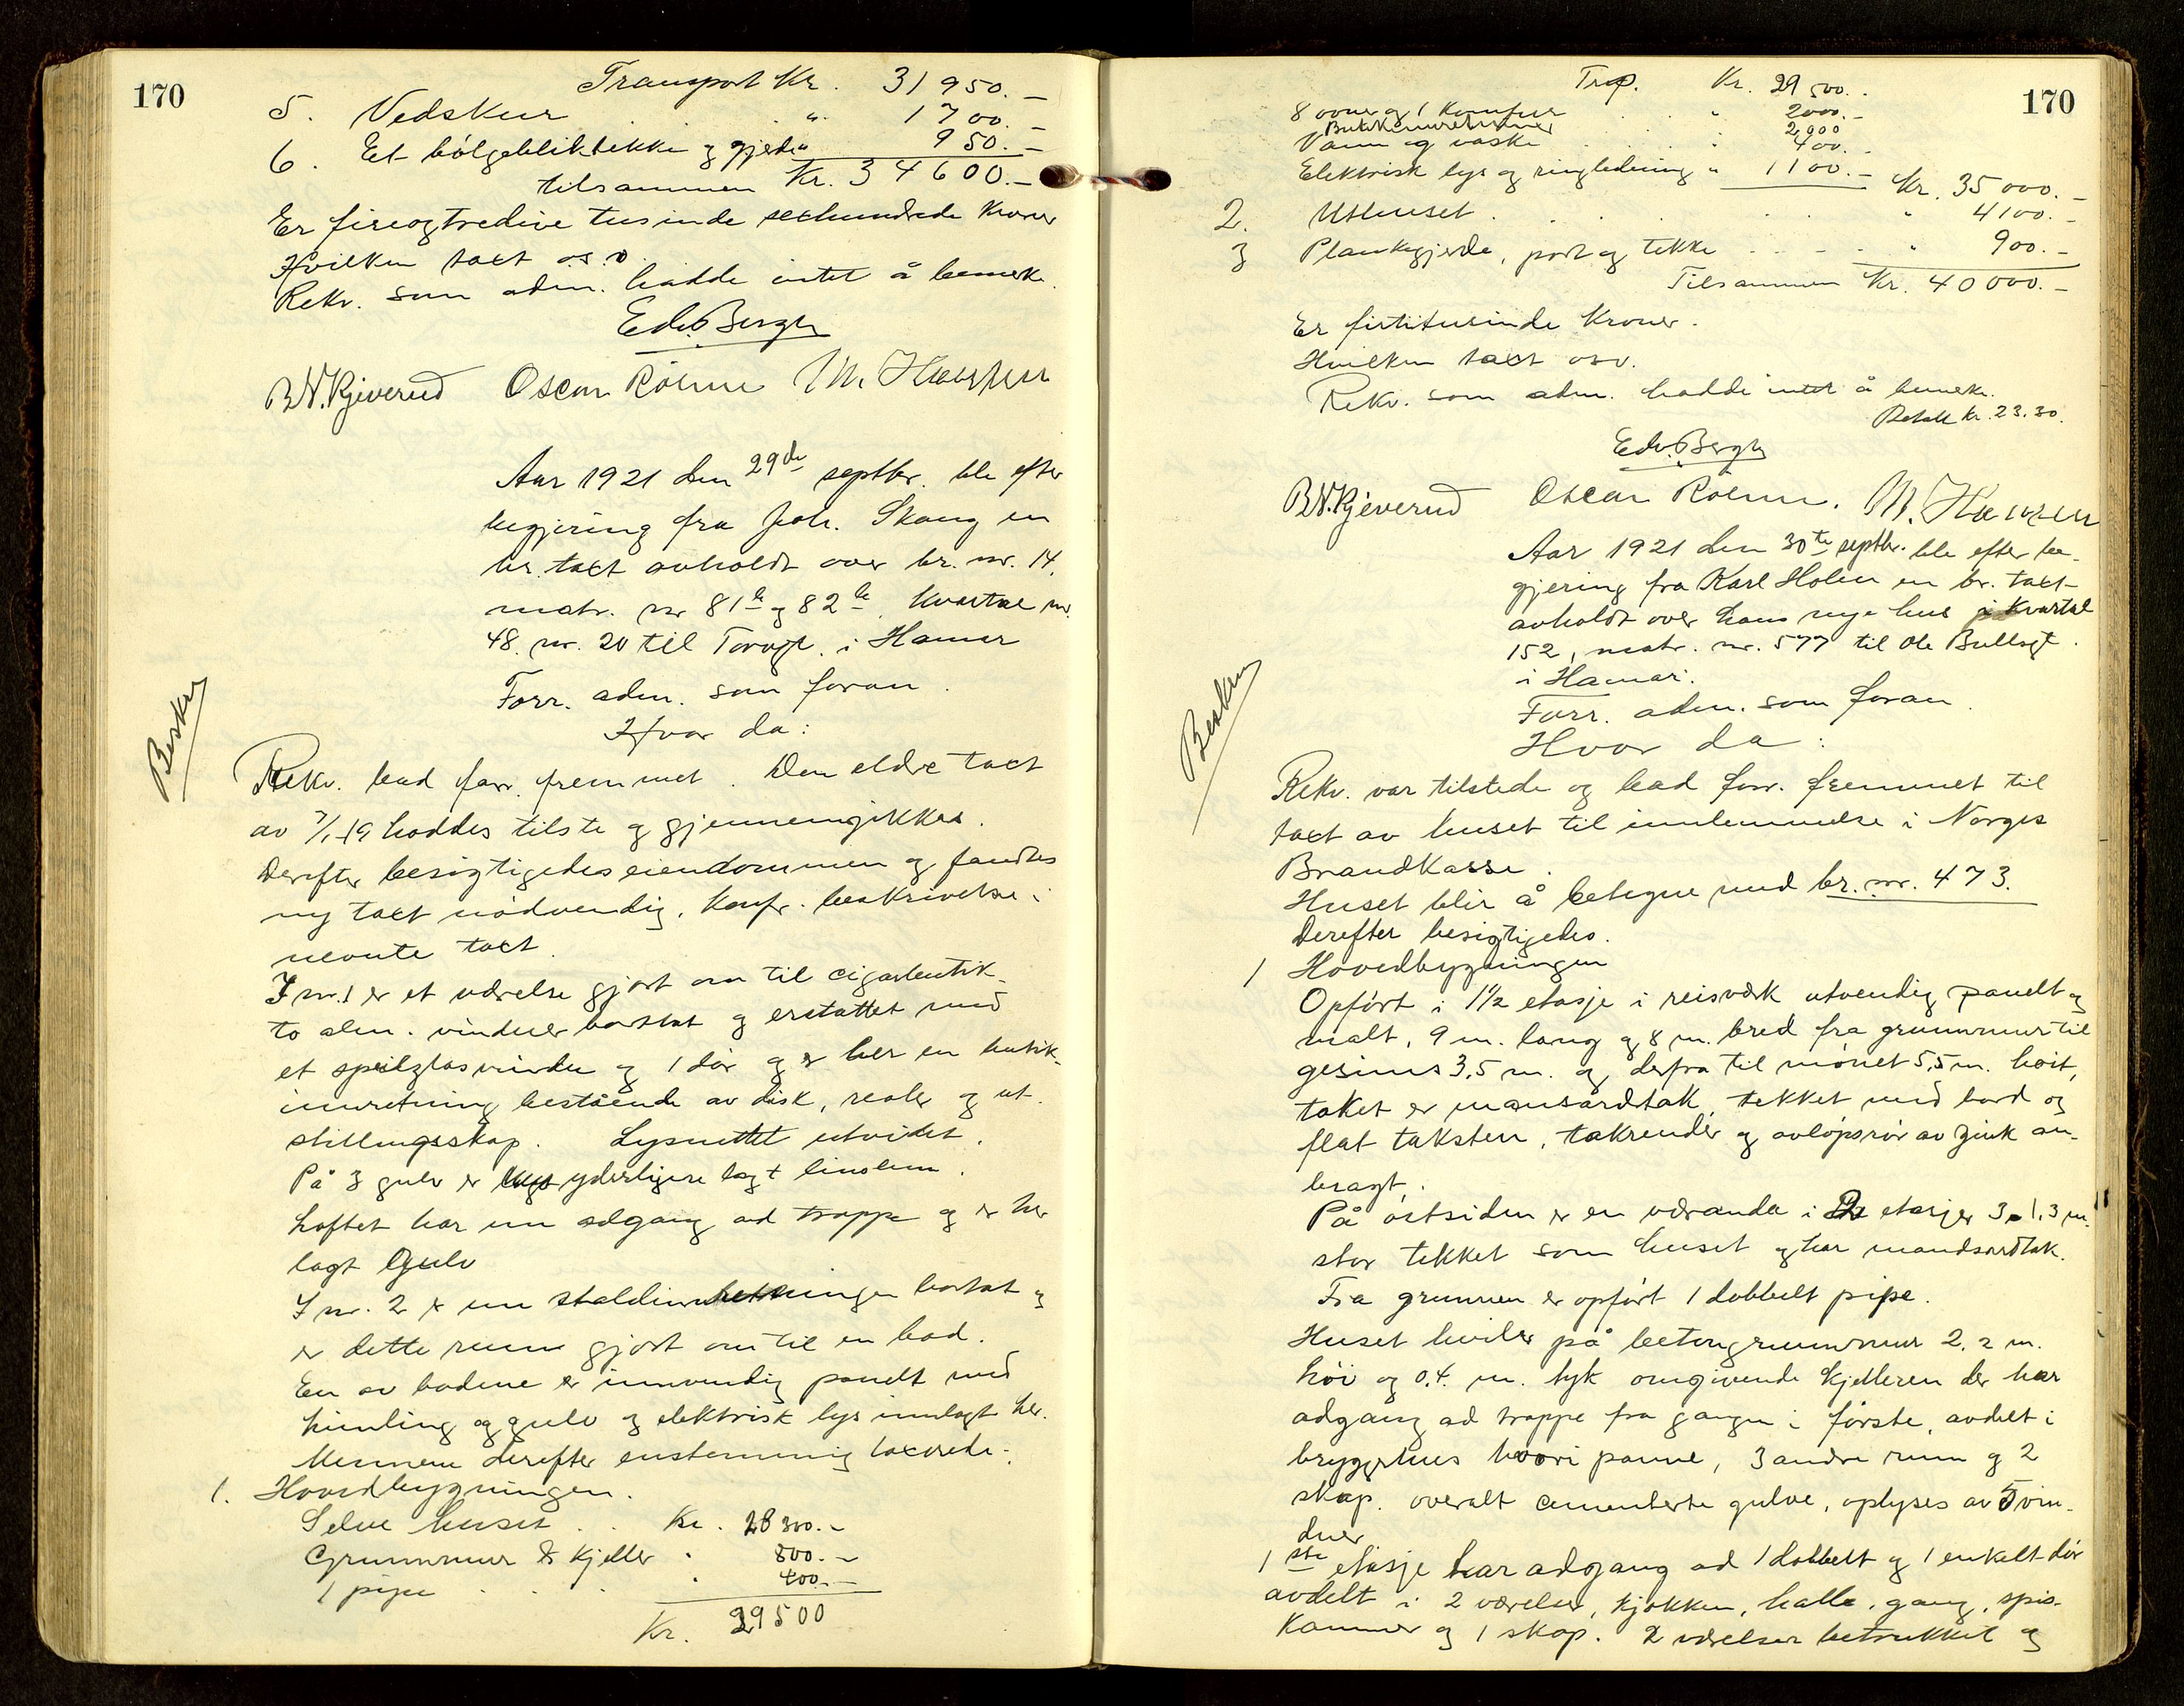 170
Transport Kr. 31950.-
5. Vedskur " 1700.-
6. Et bølgebliktekke og gjerde " 950.-
tilsammen Kr. 34600.-
Er fireogtredive tusinde sexhundrede Kroner
Hvilken taxt o.s.v.
Rekv. som adm. hadde intet å bemerke.
Edv. Bergh
B.N. Kjeverud Oscar Röhme M. Hansen
Aar 1921 den 29de septbr. ble efter
begjering fra Joh. Skaug en
br. taxt avholdt over br. nr. 14,
matr. nr 81 b og 82 b, Kvartal nr.
48. nr. 20 til Torvgt. i Hamar
Forr. adm. som foran.
Hvor da:
Beskr
Rekv. bad forr. fremmet. Den eldre taxt
av 7/1-19 haddes tilste og gjennemgikkes.
Derefter besigtigedes eiendommen og fandtes
ny taxt nødvendig. Konfr. beskrivelse i
nevnte taxt.
I nr. 1 er et værelse gjort om til cigarbutik
to alm. vinduer borttat og erstattet med
et speilglasvindu og 1 dør og er her en butik-
innretning bestående av disk, reoler og ut-
stillingsskap. Lysnettet utvidet.
På 3 gulv er yderligere lagt linoleum.
Loftet har nu adgang ad trappe og er her
lagt Gulv
I nr. 2 er nu staldinnretningen borttat og
er dette rum gjort om til en bod.
En av bodene er innvendig panelt med
himling og gulv og elektrisk lys innlagt her.
Mennene derefter enstemmig taxerede:
1. Hovedbygningen.
Selve huset . . Kr. 28300.-
Grunnmur & Kjeller " 800.-
1 pipe . . . " 400.-
Kr. 29500
170
Trsp. Kr. 29500.-
8 ovner og 1 Komfur . . " 2000.-
Butikinnretninger " 2000
Vann og vaske . . . " 400.-
Elektrisk lys og ringledning " 1100.- Kr. 35000.-
2. Uthuset . . . . " 4100.-
3 Plankegjerde, port og tekke . . . " 900.-
Tilsammen Kr. 40000.-
Er firtitusinde Kroner.
Hvilken taxt osv.
Rekv. som adm. hadde intet å bemerke.
Betalt kr. 23.30.
Edv. Bergh
B.N. Kjeverud Oscar Röhme. M. Hansen
Aar 1921 den 30te septbr. ble efter be-
gjering fra Karl Holen en br. taxt
avholdt over hans nye hus på Kvartal
152, matr. nr. 577 til Ole Bullsgt.
i Hamar.
Forr. adm. som foran.
Hvor da:
Beskr
Rekv. var tilstede og bad forr. fremmet til
taxt av huset til innlemmelse i Norges
Brandkasse.
Huset blir å betegne med br. nr. 473.
Derefter besigtigedes.
1 Hovedbygningen
Opført i 1 1/2 etasje i reisverk utvendig panelt og
malt, 9 m. lang og 8 m. bred fra grunnmur til
gesims 3,5 m. og derfra til mønet 5,5 m. høit,
taket er mansardtak, tekket med bord og
flat taksten, takrender og avløpsrør av zink an-
bragt.
På østsiden er en veranda i 2 etasjer 3 . 1,3 m.
stor tekket som huset og har mandsardtak.
Fra grunnen er opført 1 dobbelt pipe.
Huset hviler på betongrunnmur 2,2 m.
høi og 0,4. m. tyk omgivende Kjelleren der har
adgang ad trappe fra gangen i første, avdelt i
bryggerhus hvori panne, 3 andre rum og 2
skap. overalt cementerte gulve, oplyses av 5 vin-
duer
1ste etasje har adgang ad 1 dobbelt og 1 enkelt dør
avdelt i 2 værelser, kjøkken, halle, gang, spis-
Kammer og 1 skap. 2 værelser betrukket og